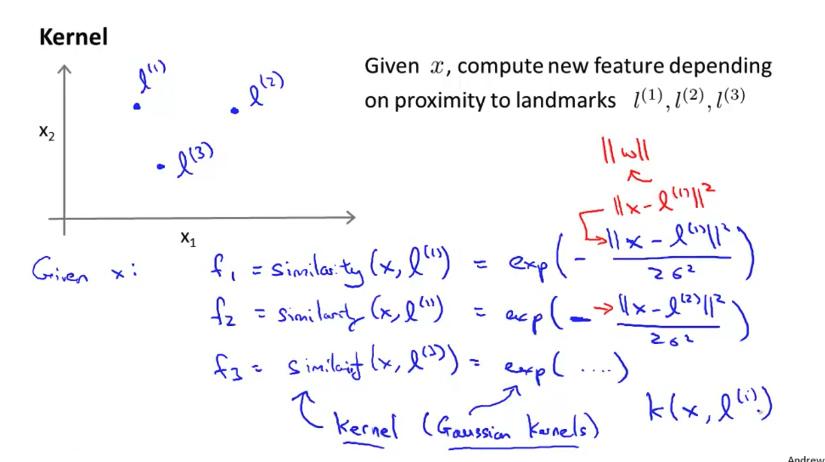 Kernel
Given x, compute new feature depending
on proximity to landmarks l⁽¹⁾, l⁽²⁾, l⁽³⁾
l⁽¹⁾
l⁽²⁾
l⁽³⁾
x₂
x₁
||w||
||x - l⁽¹⁾||²
Given x: f₁ = similarity(x, l⁽¹⁾) = exp(- ||x - l⁽¹⁾||² / 2σ²)
f₂ = similarity(x, l⁽¹⁾) = exp(- ||x - l⁽²⁾||² / 2σ²)
f₃ = similarity(x, l⁽³⁾) = exp(....)
kernel (Gaussian kernels)
k(x, l⁽ⁱ⁾)
Andrew